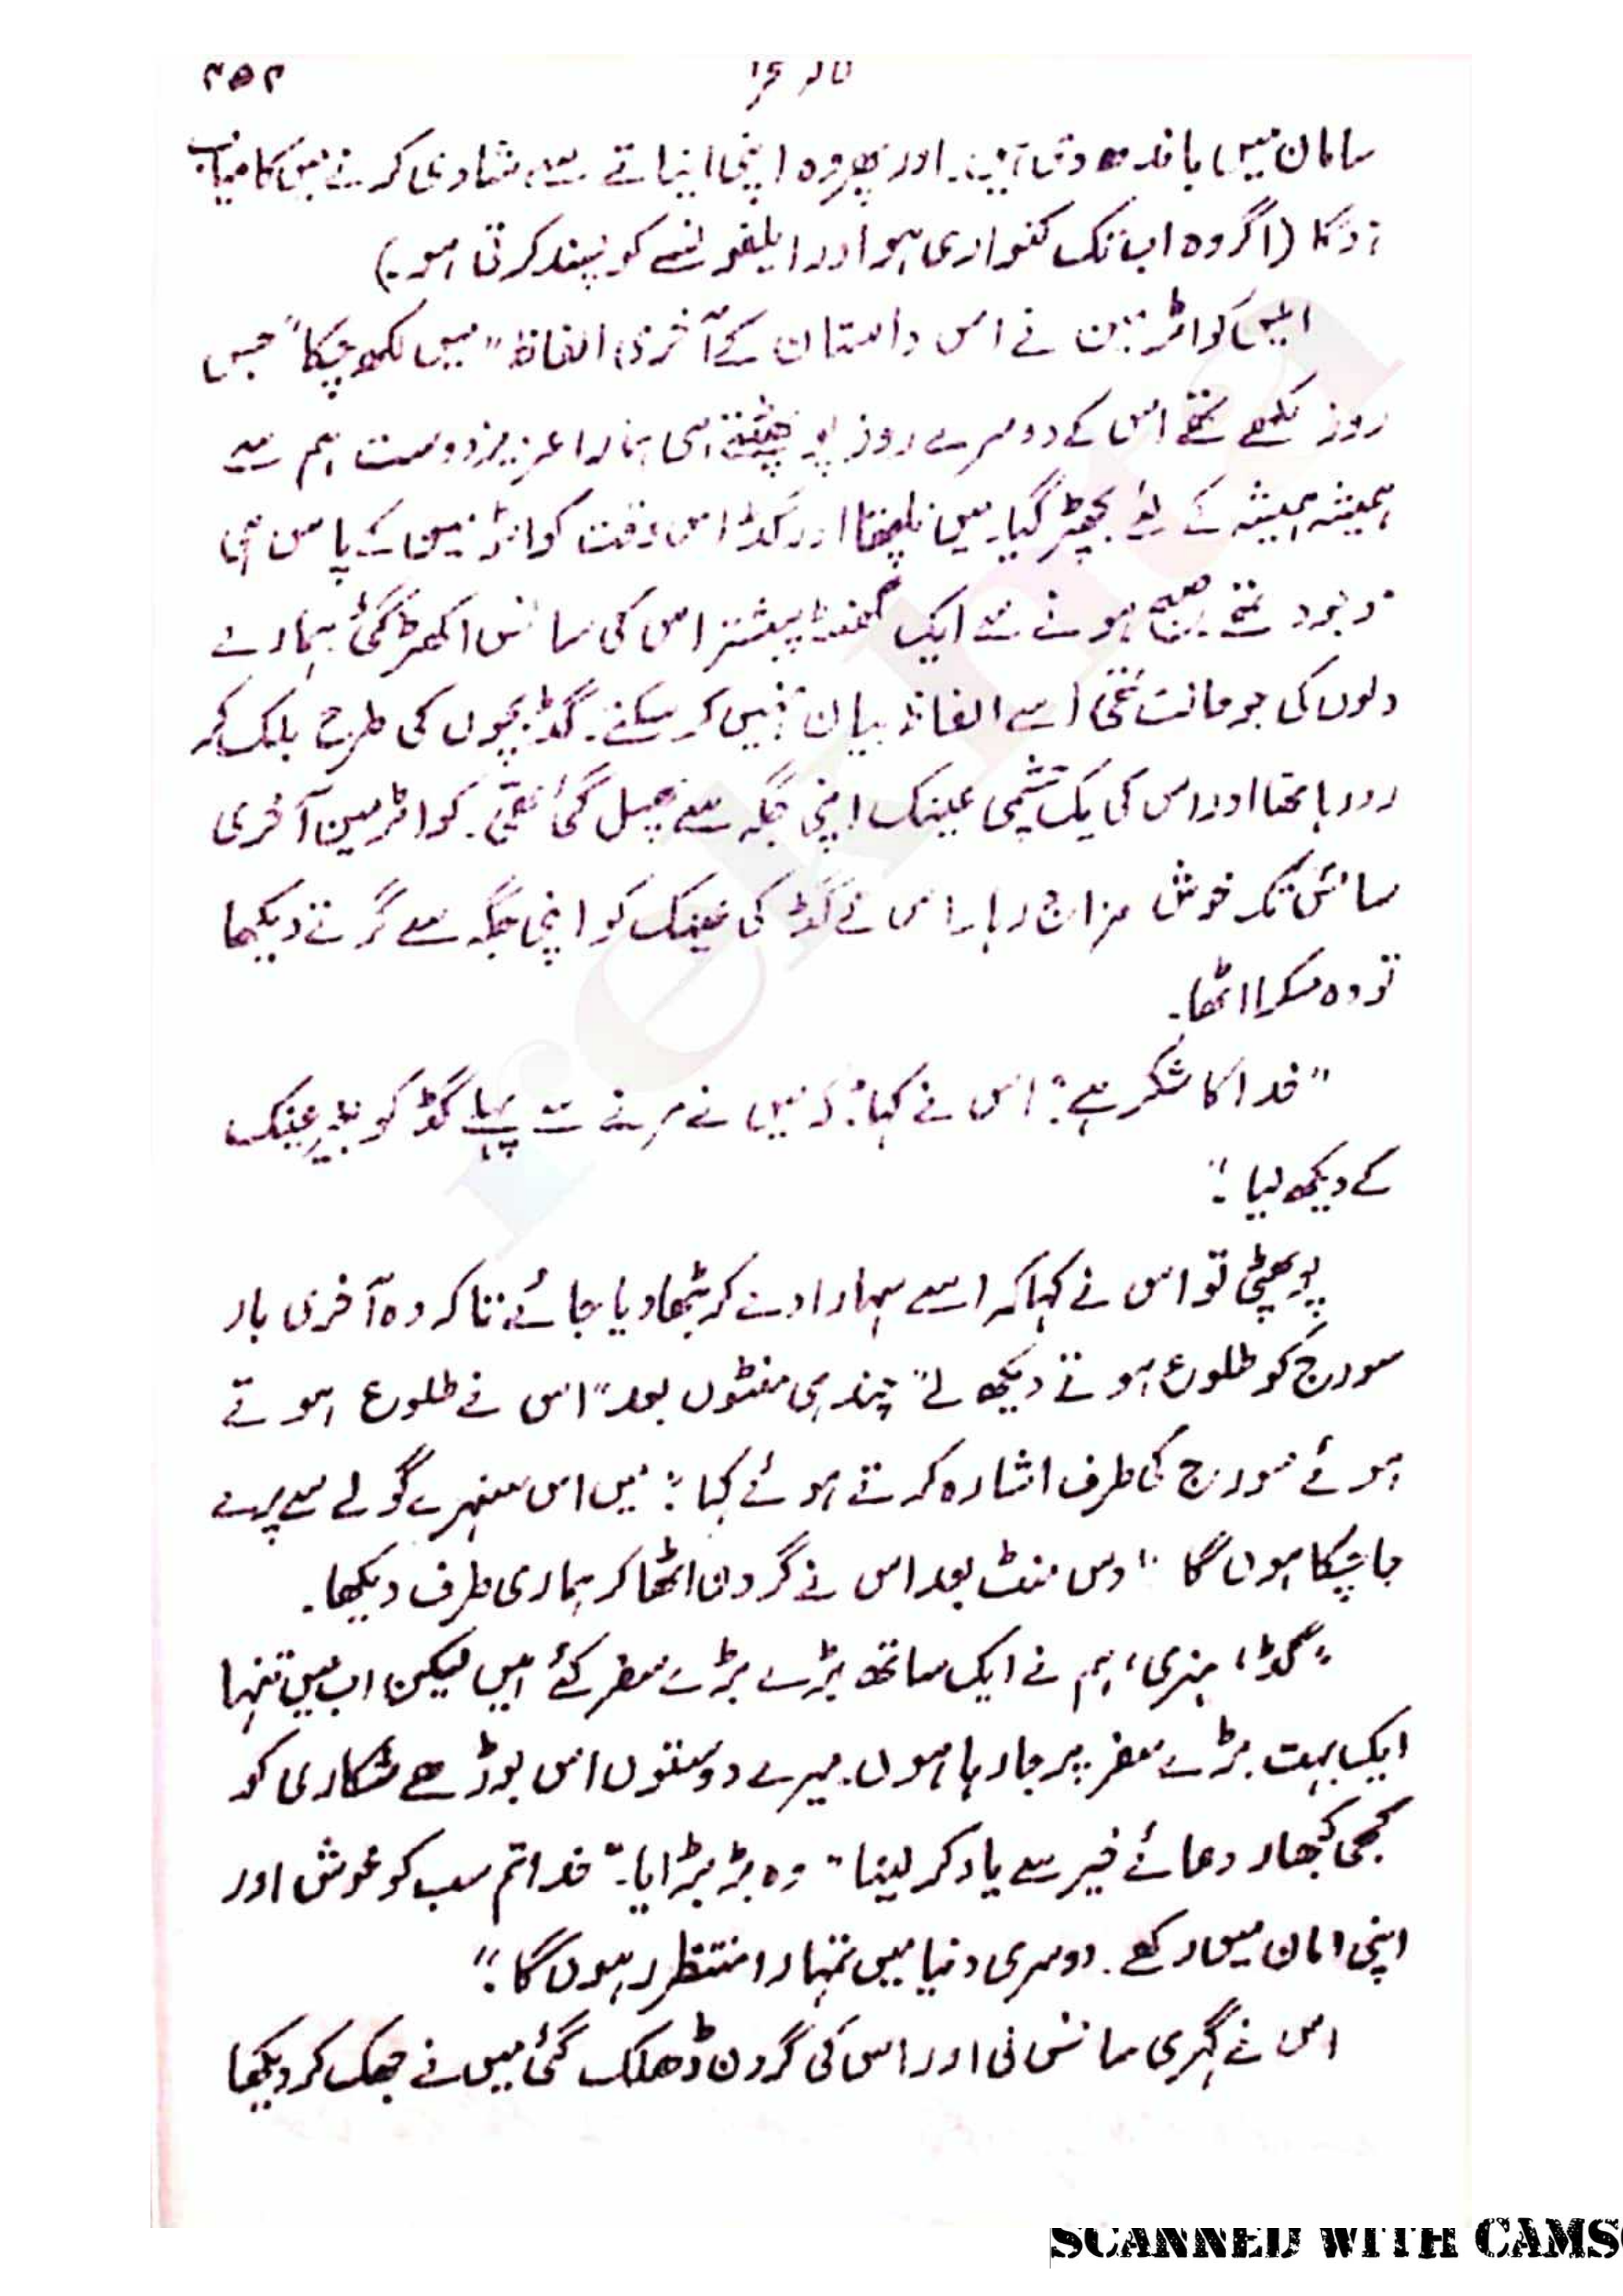 ۲۵۲
سامان میں باندھ دی ہیں۔ اور پھر وہ اپنی انیاتے سے شادی کرنے میں کامیاب
ہوگا (اگر وہ اب تک کنواری ہو اور ایلفونسے کو پسند کرتی ہو۔)
ایلین کواٹرمین نے اس داستان کے آخری الفاظ "میں لکھ چکا" جس
روز لکھے تھے اس کے دوسرے روز پو پھٹتے ہی ہمارا عزیز دوست ہم سے
ہمیشہ ہمیشہ کے لئے بچھڑ گیا۔ میں نلپھتا اور گڈ اس وقت کواٹرمین کے پاس ہی
موجود تھے صبح ہونے سے ایک گھنٹہ پیشتر اس کی سانس اکھڑ گئی ہمارے
دلوں کی جو حالت تھی اسے الفاظ بیان نہیں کر سکتے۔ گڈ بچوں کی طرح بلک کر
رو رہا تھا اور اس کی یک چشمی عینک اپنی جگہ سے پھسل گئی تھی۔ کواٹرمین آخری
سانس تک خوش مزاج رہا۔ اس نے گڈ کی عینک کو اپنی جگہ سے گرتے دیکھا
تو وہ مسکرا اٹھا۔
"خدا کا شکر ہے؛" اس نے کہا: "کہ میں نے مرنے سے پہلے گڈ کو بغیر عینک
کے دیکھ لیا۔"
پو پھٹی تو اس نے کہا کہ اسے سہارا دے کر بٹھا دیا جائے تاکہ وہ آخری بار
سورج کو طلوع ہوتے دیکھ لے "چند ہی منٹوں بعد" اس نے طلوع ہوتے
ہوئے سورج کی طرف اشارہ کرتے ہوئے کہا: "میں اس سنہرے گولے سے پرے
جا چکا ہوں گا" دس منٹ بعد اس نے گردن اٹھا کر ہماری طرف دیکھا۔
"گڈ، ہنری، ہم نے ایک ساتھ بڑے بڑے سفر کئے ہیں لیکن اب میں تنہا
ایک بہت بڑے سفر پر جا رہا ہوں۔ میرے دوستوں اس بوڑھے شکاری کو
کبھی کبھار دعائے خیر سے یاد کر لینا" وہ بڑبڑایا۔ "خدا تم سب کو خوش اور
اپنی امان میں رکھے۔ دوسری دنیا میں تمہارا منتظر رہوں گا۔"
اس نے گہری سانس لی اور اس کی گردن ڈھلک گئی میں نے جھک کر دیکھا
rekhta
SCANNED WITH CAMS